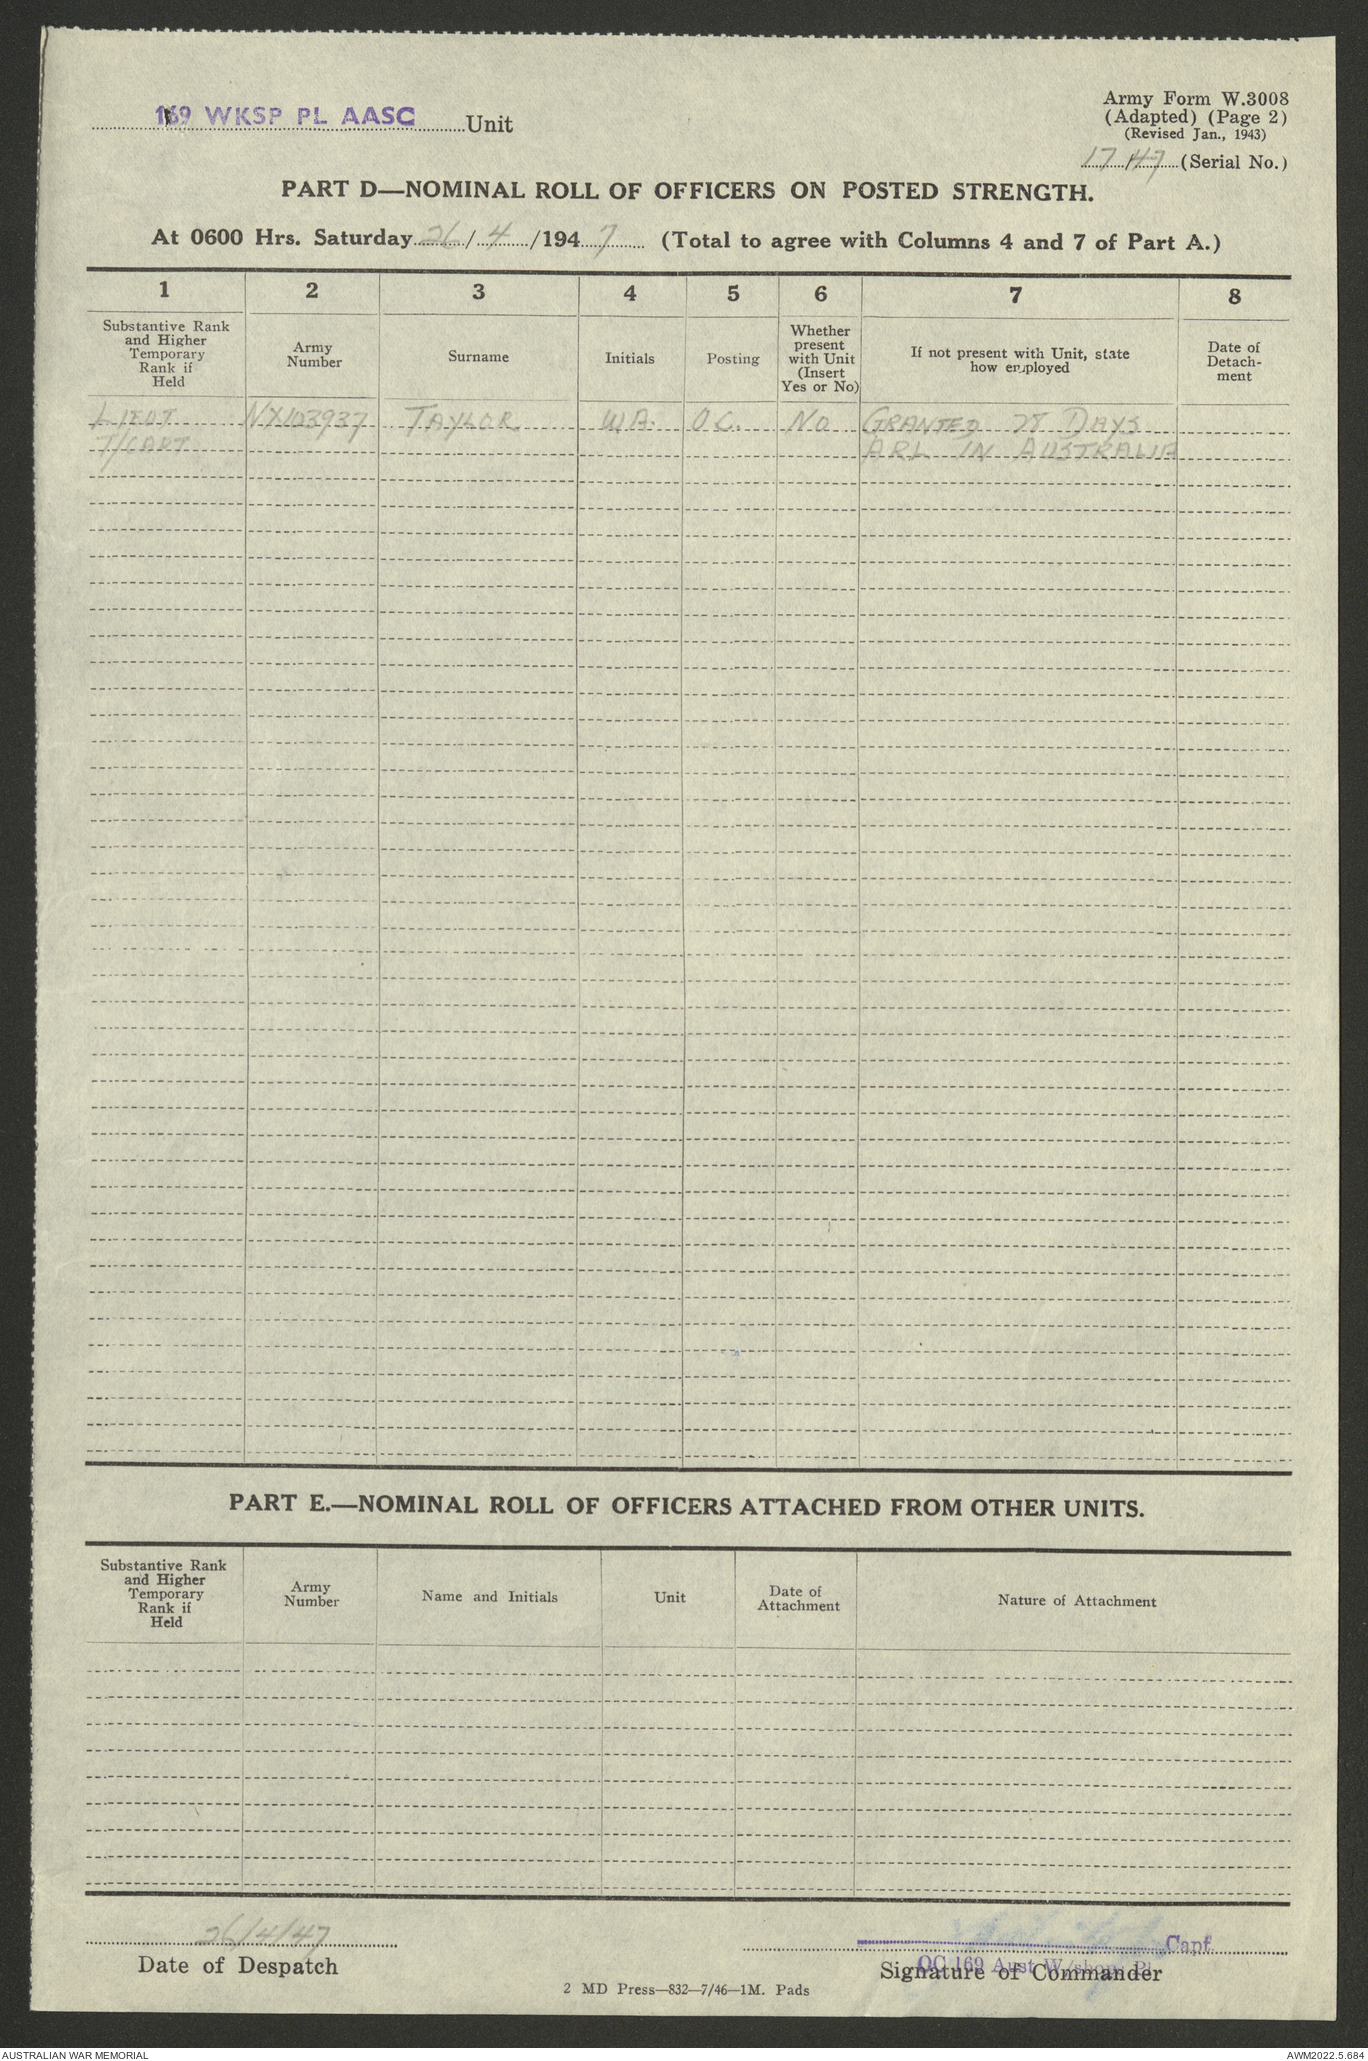 169 WKSP PL AASC Unit
Army Form W.3008
(Adapted) (Page 2)
(Revised Jan., 1943)
17 47 (Serial No.)
PART D—NOMINAL ROLL OF OFFICERS ON POSTED STRENGTH.
At 0600 Hrs. Saturday 26/4/1947 (Total to agree with Columns 4 and 7 of Part A.)
1 2 3 4 5 6 7 8
Substantive Rank
and Higher
Temporary
Rank if
Held
Army
Number
Surname
Initials
Posting
Whether
present
with Unit
(Insert
Yes or No)
If not present with Unit, state
how employed
Date of
Detach-
ment
LIEUT NX103937 TAYLOR WA. OC. NO GRANTED 28 DAYS
T/CAPT ARL IN AUSTRALIA
PART E.—NOMINAL ROLL OF OFFICERS ATTACHED FROM OTHER UNITS.
Substantive Rank
and Higher
Temporary
Rank if
Held
Army
Number
Name and Initials
Unit
Date of
Attachment
Nature of Attachment
26/4/47
Date of Despatch
Capt
OC 169 Aust W/shop Pl
Signature of Commander
2 MD Press—832—7/46—1M. Pads
AUSTRALIAN WAR MEMORIAL
AWM2022.5.684